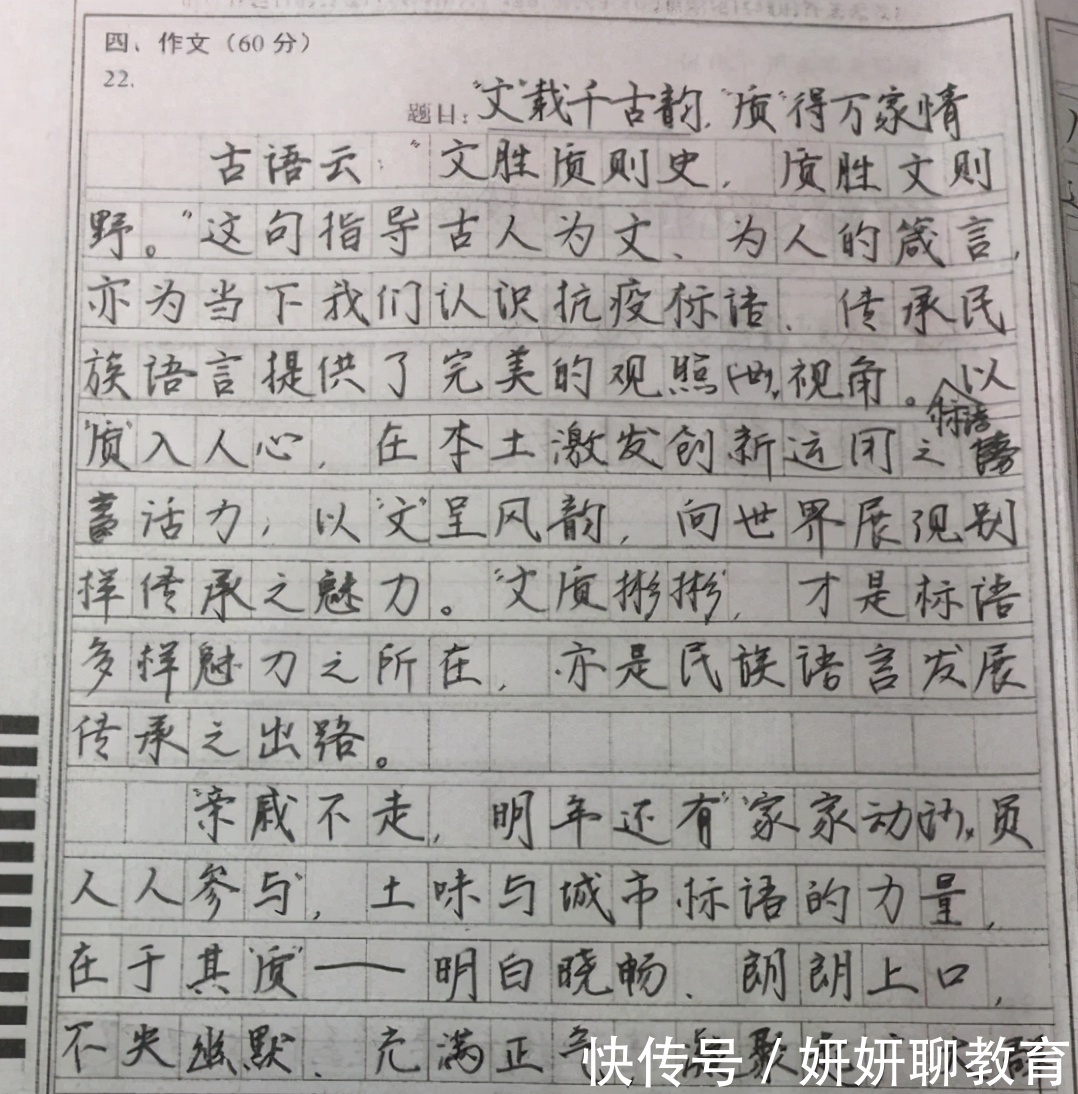 四、作文（60分）
22.
题目：“文”载千古韵，“质”得万家情
古语云：“文胜质则史，质胜文则
野。”这句指导古人为文、为人的箴言，
亦为当下我们认识抗疫标语、传承民
族语言提供了完美的观照视角。以
标语
“质”入人心，在本土激发创新运用之
活力，以“文”呈风韵，向世界展现别
样传承之魅力。“文质彬彬”，才是标语
多样魅力之所在，亦是民族语言发展
传承之出路。
“亲戚不走，明年还有”“家家动员
人人参与”，土味与城市标语的力量，
在于其“质”——明白晓畅、朗朗上口，
不失幽默、充满正
快传号 / 妍妍聊教育